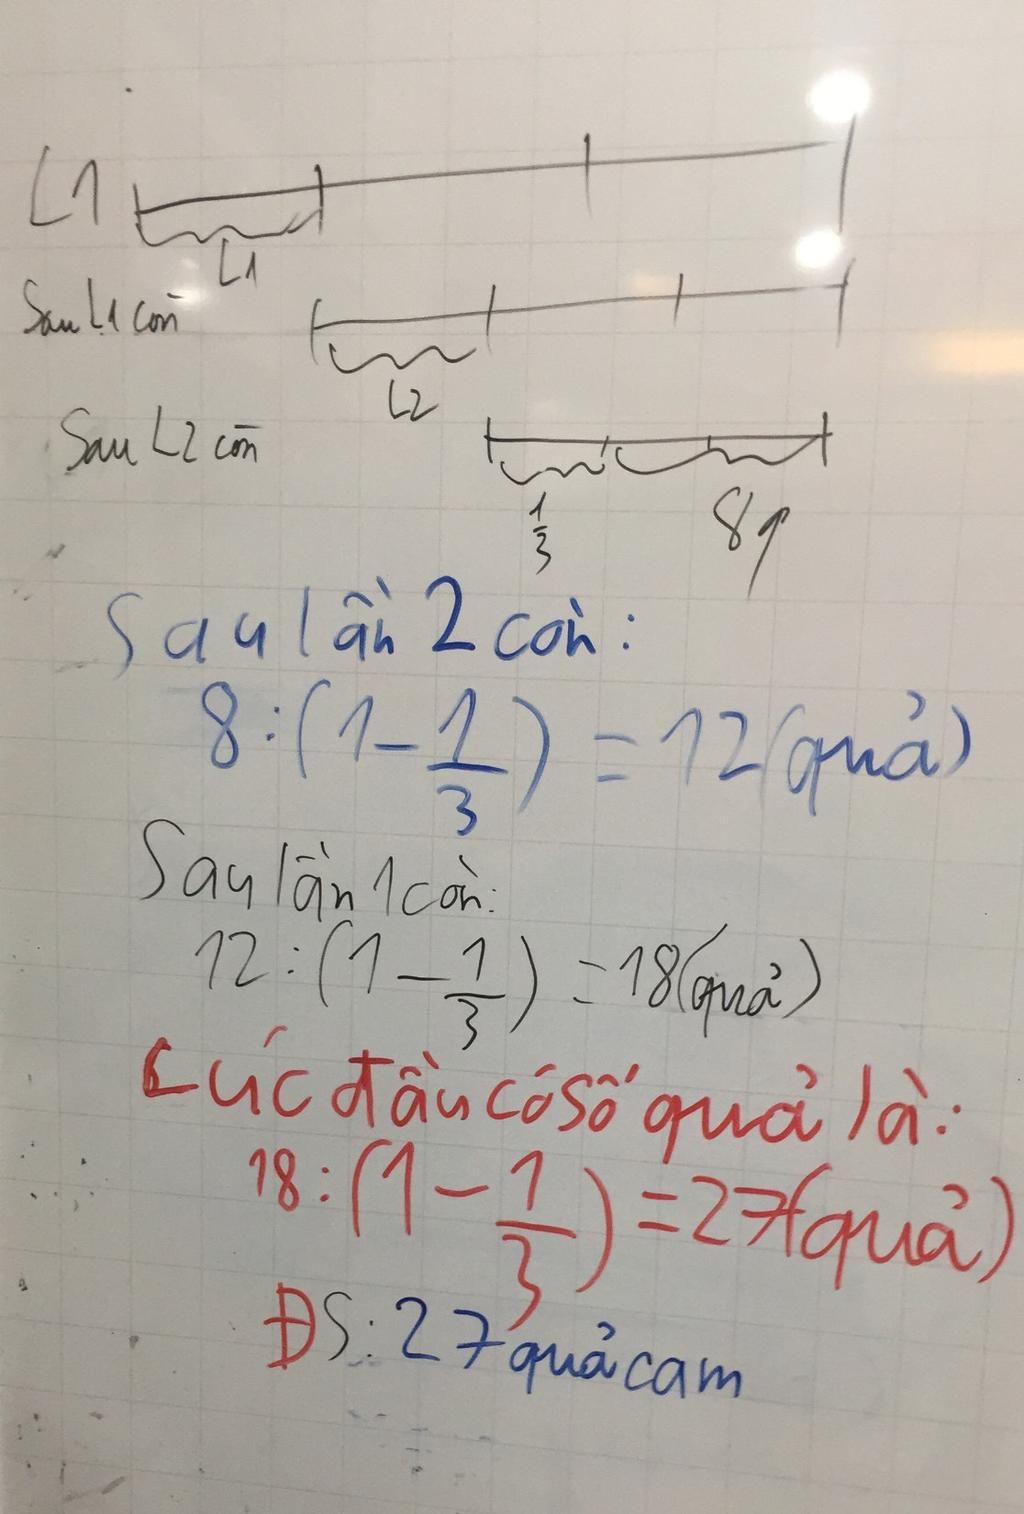 L1
L1
Sau L1 còn
L2
Sau L2 còn
1/3
8q
Sau lần 2 còn:
8:(1-1/3)=12(quả)
Sau lần 1 còn:
12:(1-1/3)=18(quả)
Lúc đầu có số quả là:
18:(1-1/3)=27(quả)
ĐS: 27 quả cam